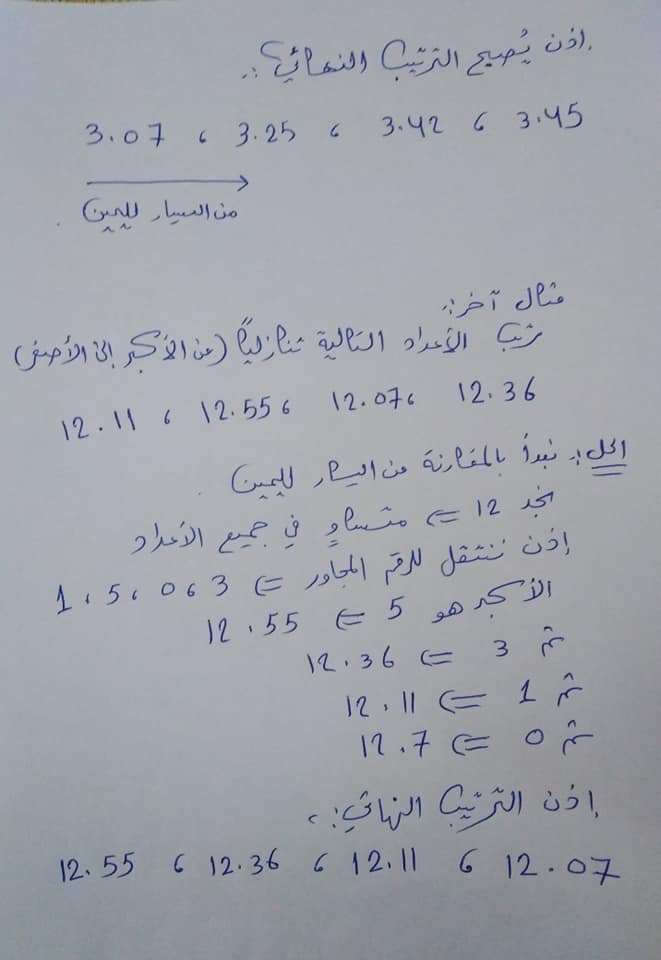 إذن يُصبح الترتيب النهائي:
3.07 ، 3.25 ، 3.42 ، 3.45
من اليسار لليمين
مثال آخر:
رتب الأعداد التالية تنازليًا (من الأكبر إلى الأصغر)
12.11 ، 12.55 ، 12.07 ، 12.36
الحل: نبدأ بالمقارنة من اليسار لليمين.
نجد 12 <= متساوٍ في جميع الأعداد
إذن ننتقل للرقم المجاور <= 3 ، 0 ، 5 ، 1
الأكبر هو 5 <= 12.55
ثم 3 <= 12.36
ثم 1 <= 12.11
ثم 0 <= 12.7
إذن الترتيب النهائي:
12.55 ، 12.36 ، 12.11 ، 12.07